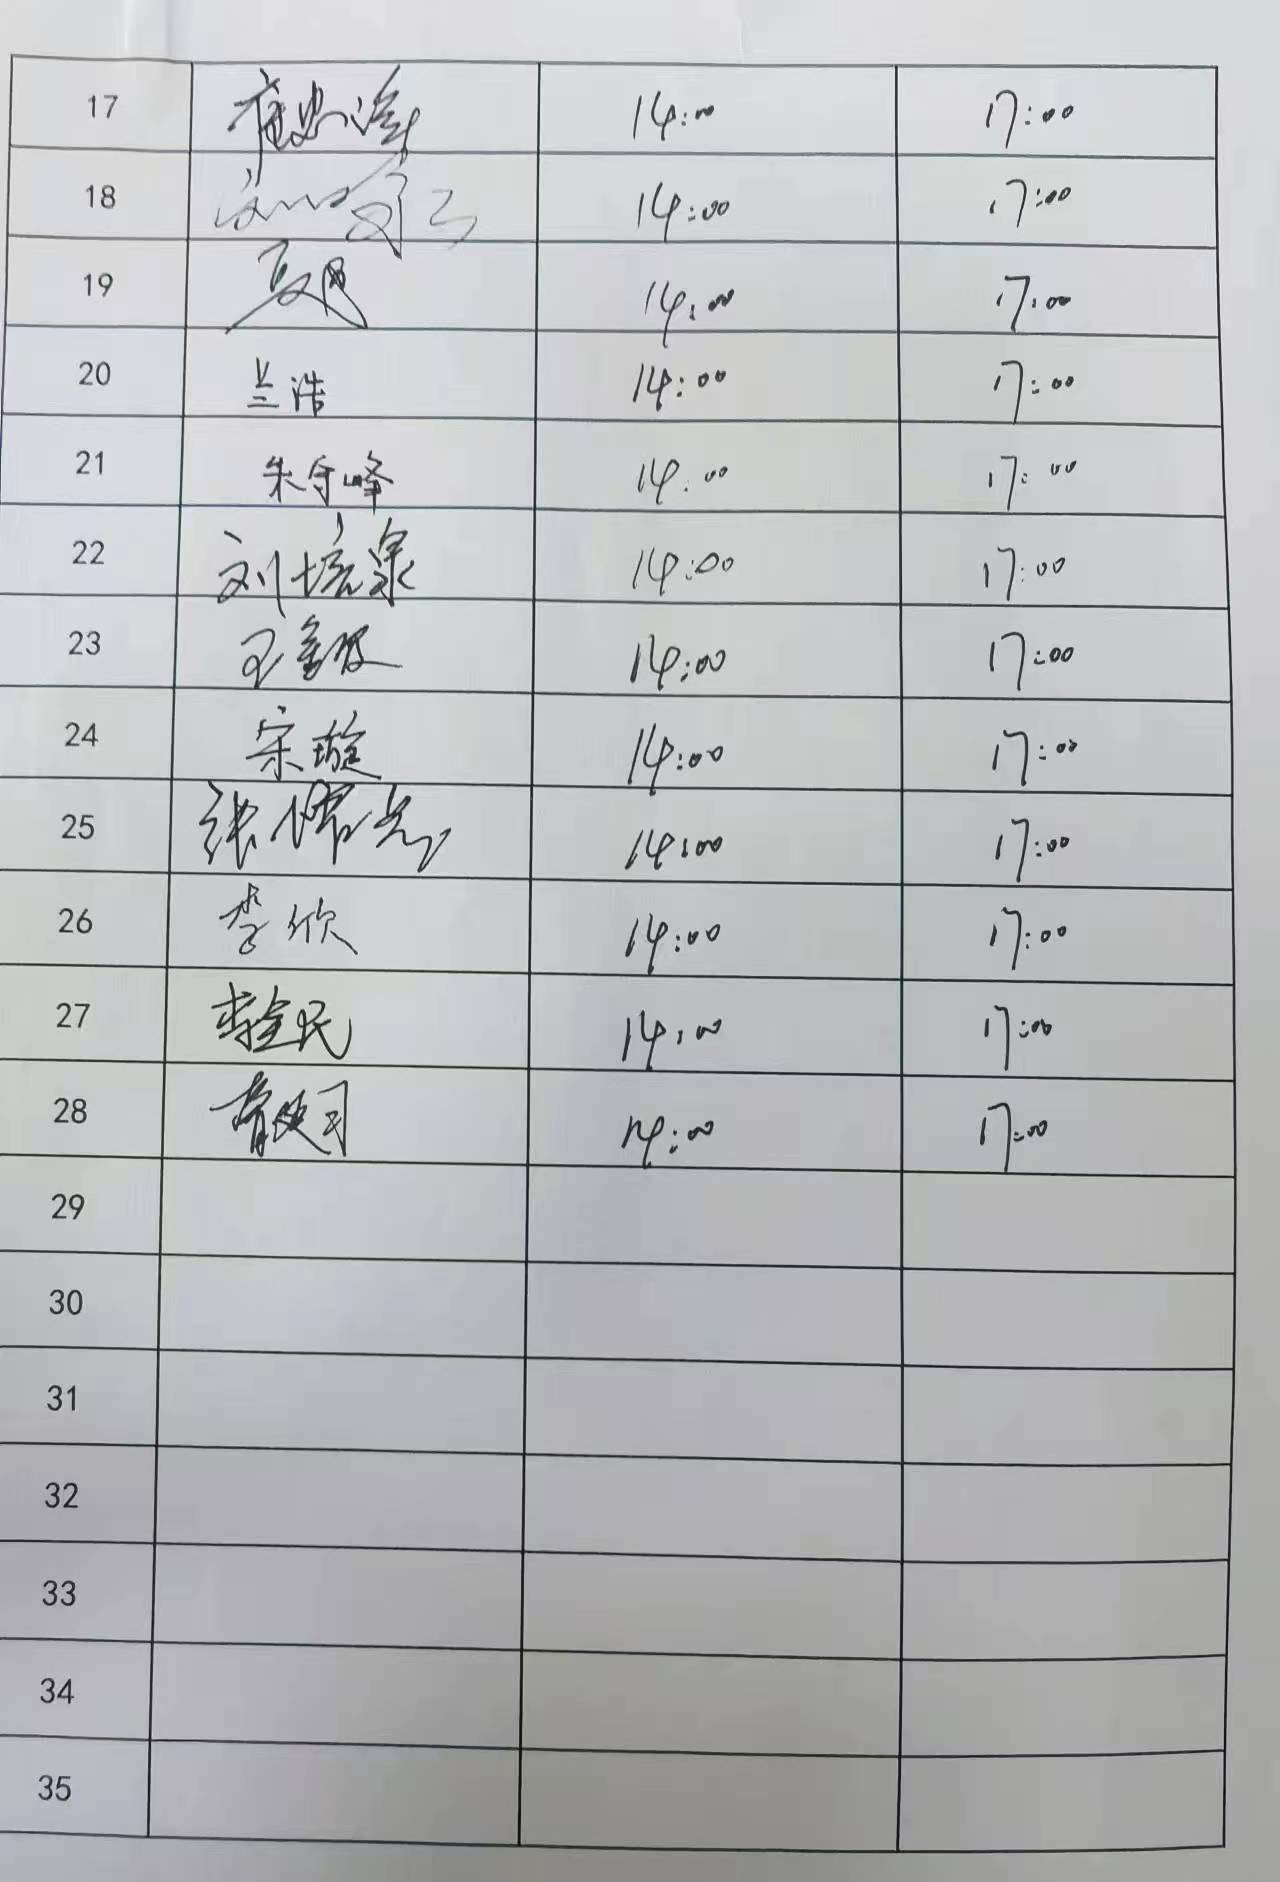 17 14:00 17:00
18 14:00 17:00
19 14:00 17:00
20 兰浩 14:00 17:00
21 朱守峰 14:00 17:00
22 刘培泉 14:00 17:00
23 14:00 17:00
24 宋璇 14:00 17:00
25 14:00 17:00
26 李欣 14:00 17:00
27 李金民 14:00 17:00
28 14:00 17:00
29
30
31
32
33
34
35